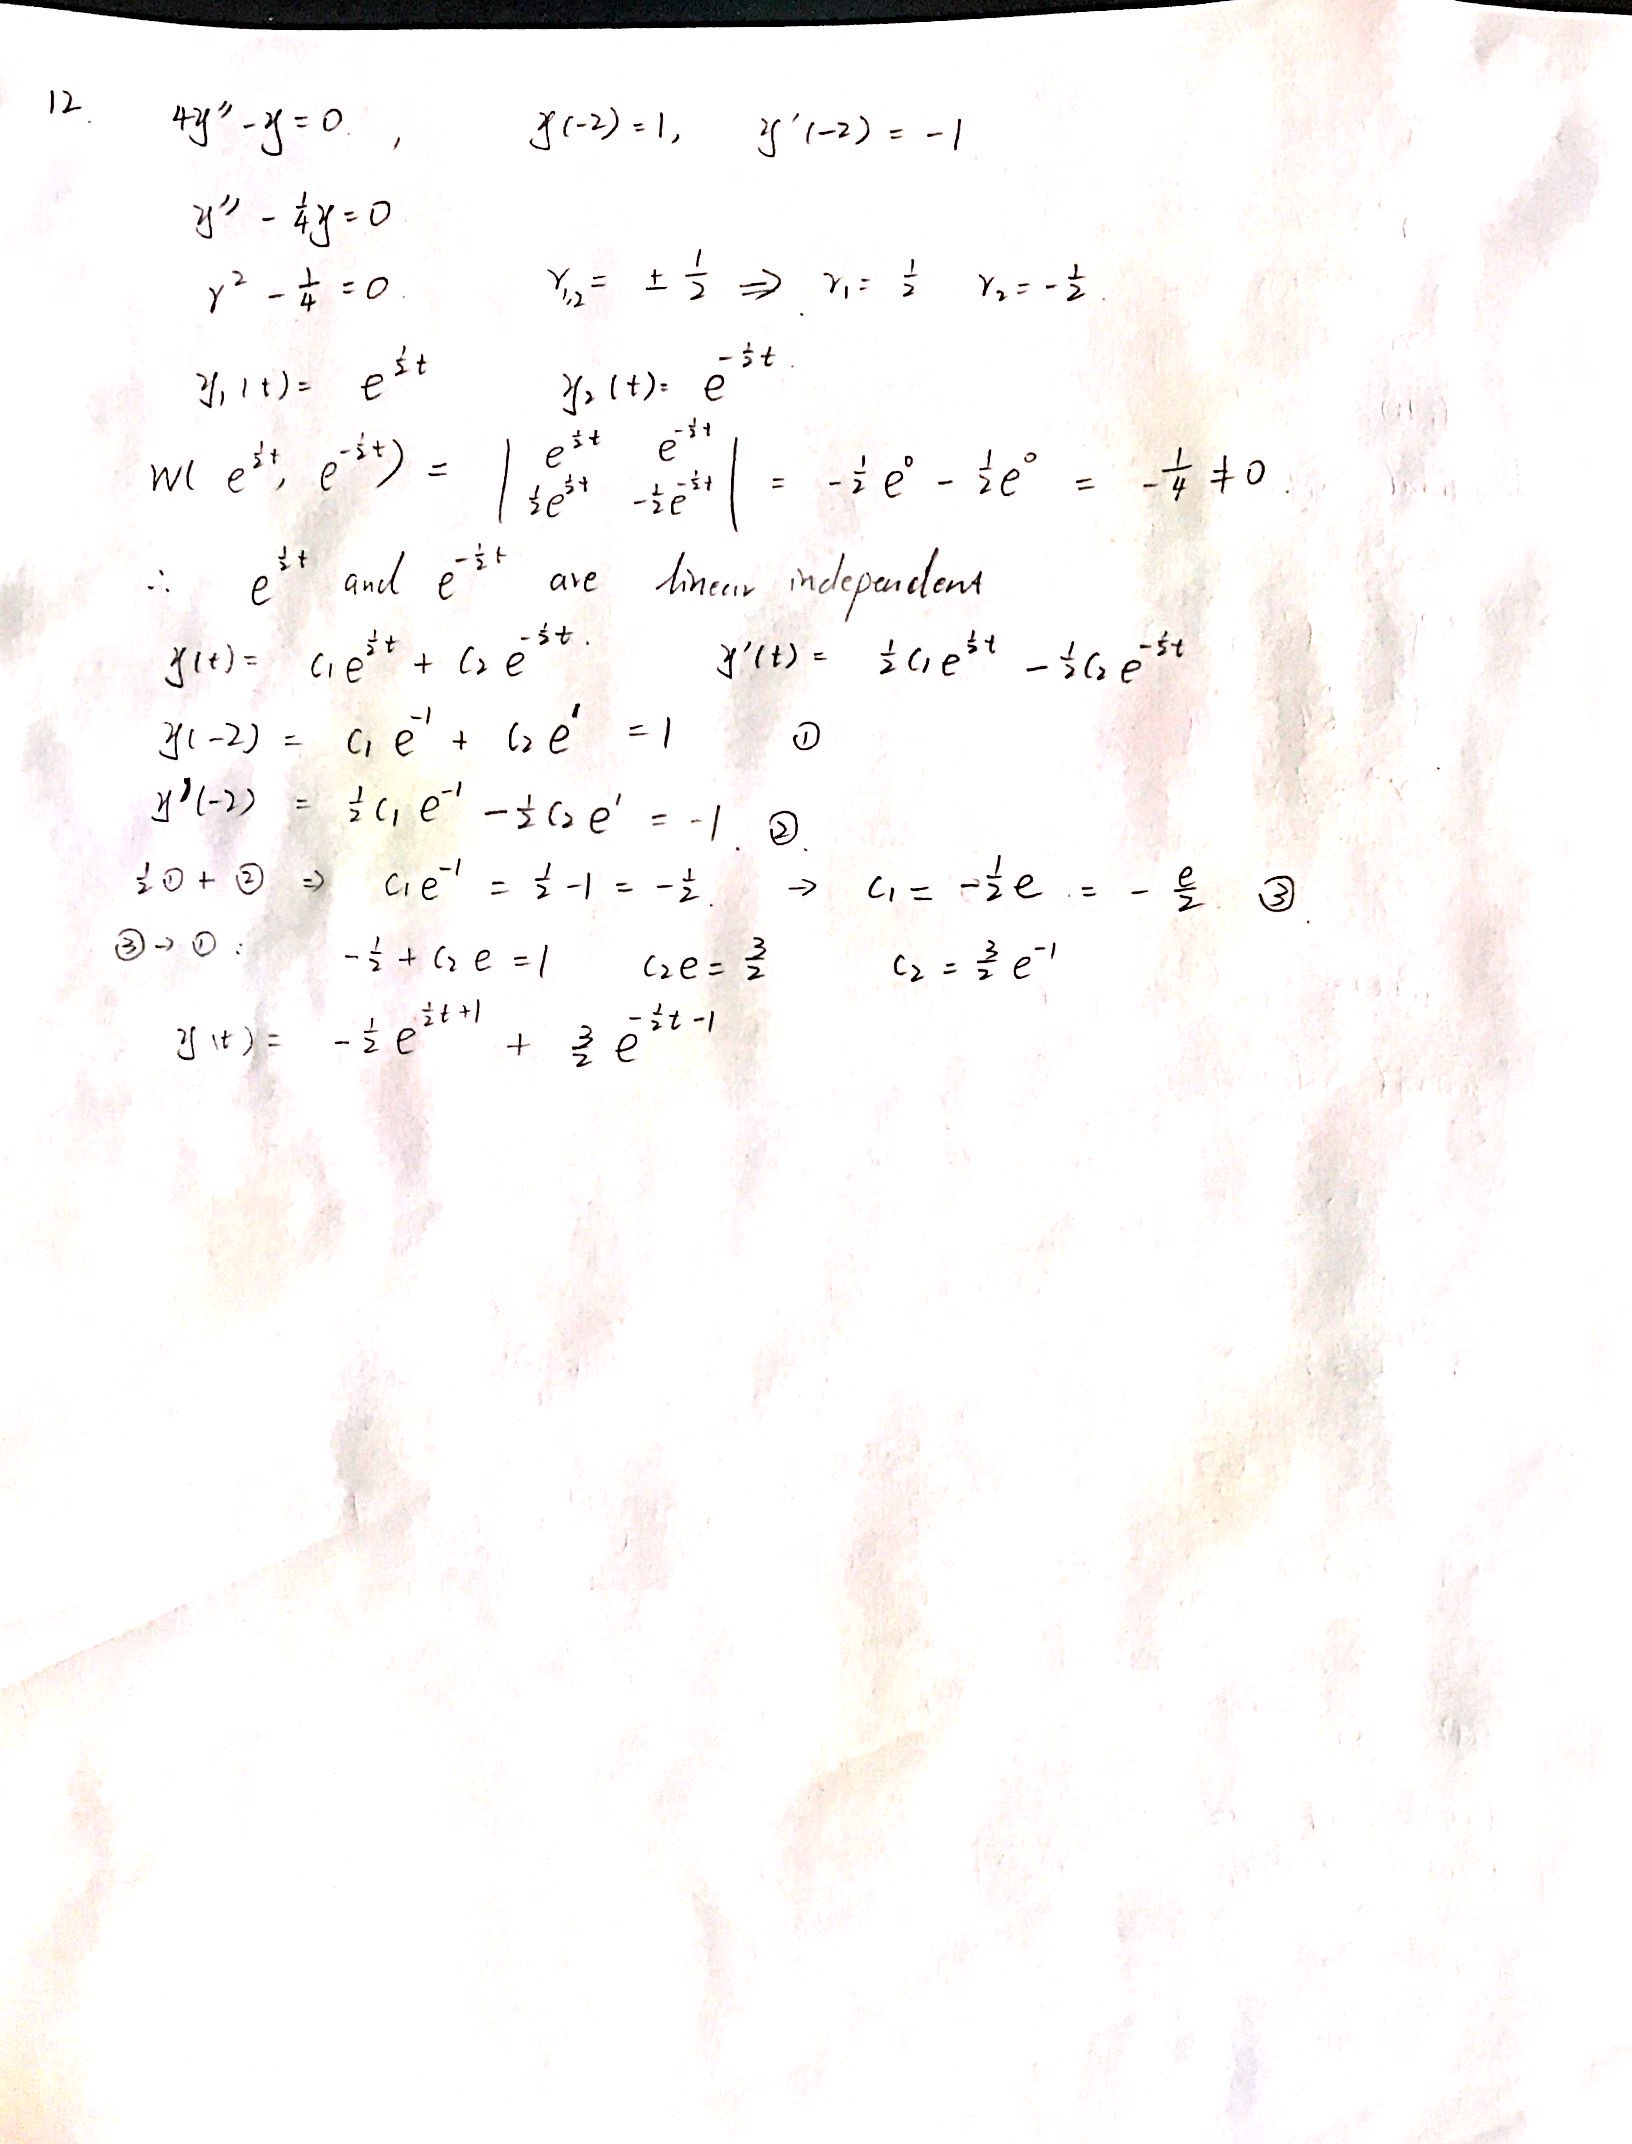 12. 4y'' - y = 0, y(-2) = 1, y'(-2) = -1
y'' - 1/4 y = 0
r² - 1/4 = 0. r₁,₂ = ± 1/2 ⇒ r₁ = 1/2 r₂ = -1/2.
y₁(t) = e^{1/2 t} y₂(t) = e^{-1/2 t}.
W( e^{1/2 t}, e^{-1/2 t}) = | e^{1/2 t} e^{-1/2 t} ; 1/2 e^{1/2 t} -1/2 e^{-1/2 t} | = -1/2 e⁰ - 1/2 e⁰ = -1/4 ≠ 0.
∴ e^{1/2 t} and e^{-1/2 t} are linear independent
y(t) = c₁ e^{1/2 t} + c₂ e^{-1/2 t}. y'(t) = 1/2 c₁ e^{1/2 t} - 1/2 c₂ e^{-1/2 t}
y(-2) = c₁ e^{-1} + c₂ e^{1} = 1 ①
y'(-2) = 1/2 c₁ e^{-1} - 1/2 c₂ e^{1} = -1. ②
1/2 ① + ② ⇒ c₁ e^{-1} = 1/2 - 1 = -1/2. → c₁ = -1/2 e = - e/2 ③
③ → ① : -1/2 + c₂ e = 1 c₂ e = 3/2 c₂ = 3/2 e^{-1}
y(t) = -1/2 e^{1/2 t + 1} + 3/2 e^{-1/2 t - 1}